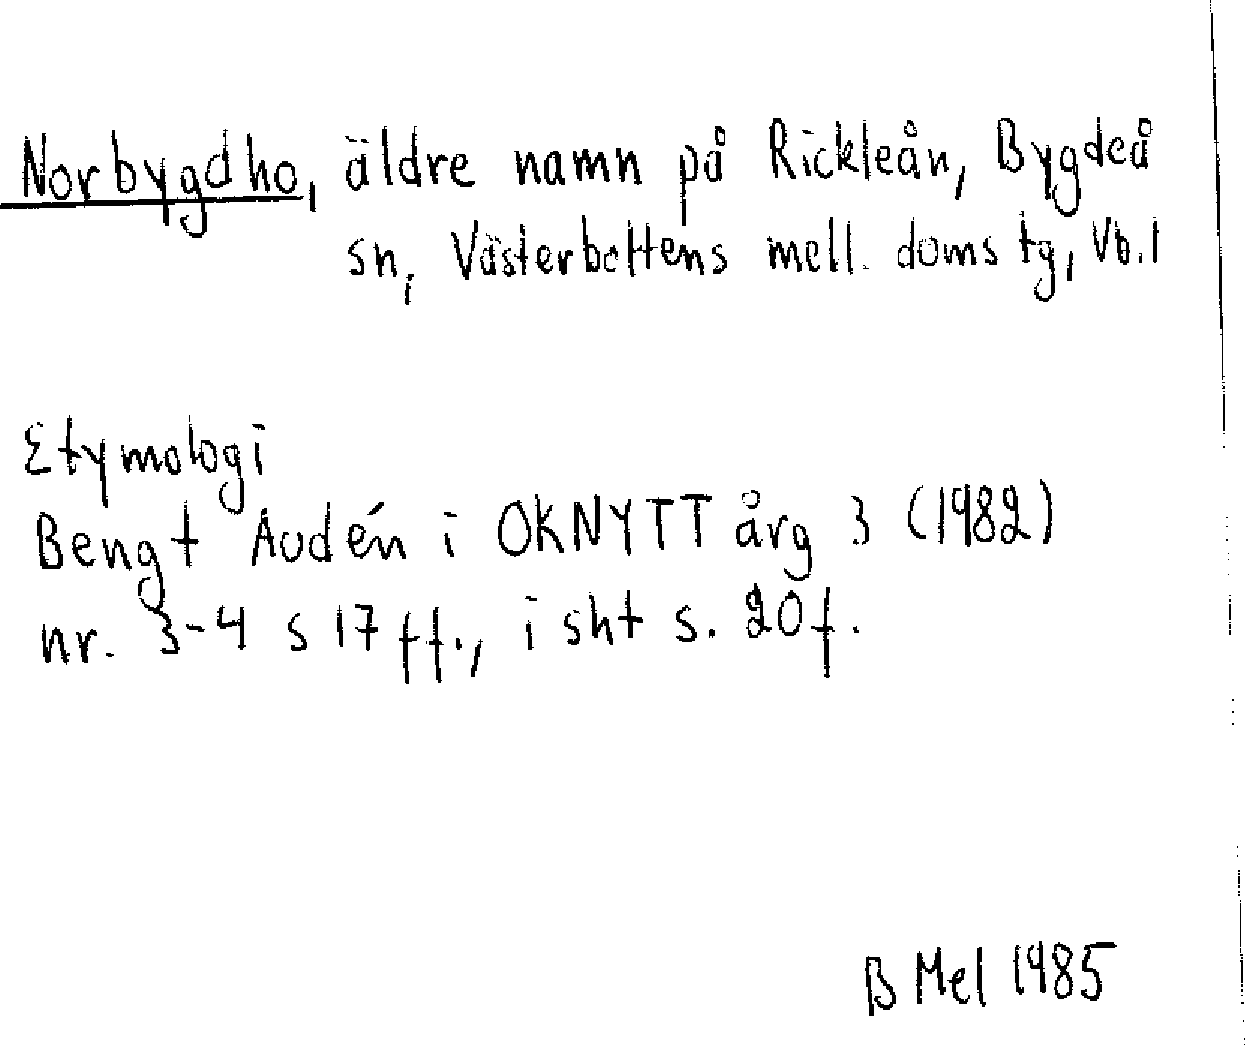 Norbygdho, äldre namn på Rickleån, Bygdeå
sn, Västerbottens mell. doms tg, Vb. l
Etymologi
Bengt Audén i OKNYTT årg 3 (1982)
nr. 3-4 s 17 ff., i sht s. 20 f.
B Mel 1985